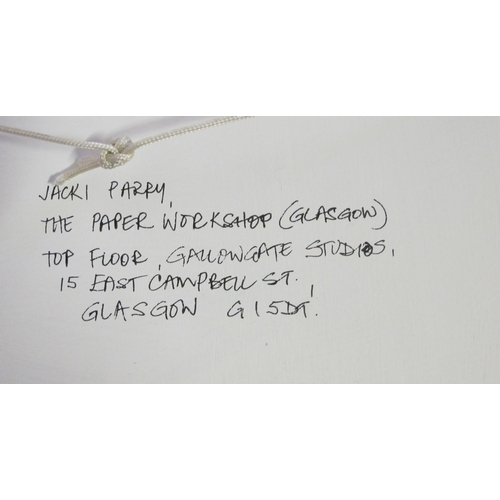 JACKI PARRY,
THE PAPER WORKSHOP (GLASGOW)
TOP FLOOR, GALLOWGATE STUDIOS,
15 EAST CAMPBELL ST.,
GLASGOW G1 5DT.